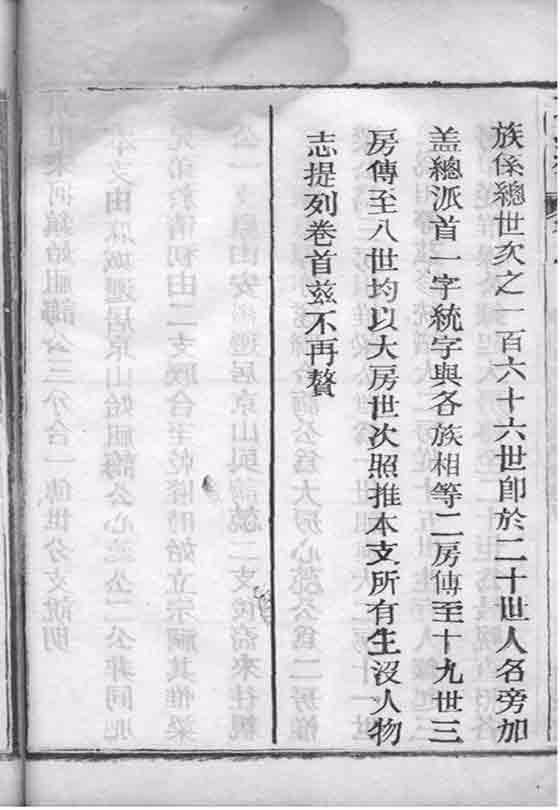 族係總世次之一百六十六世卽於二十世人名旁加
盖總派首一字統字與各族相等二房傳至十九世三
房傳至八世均以大房世次照推本支所有生沒人物
志提列卷首茲不再贅